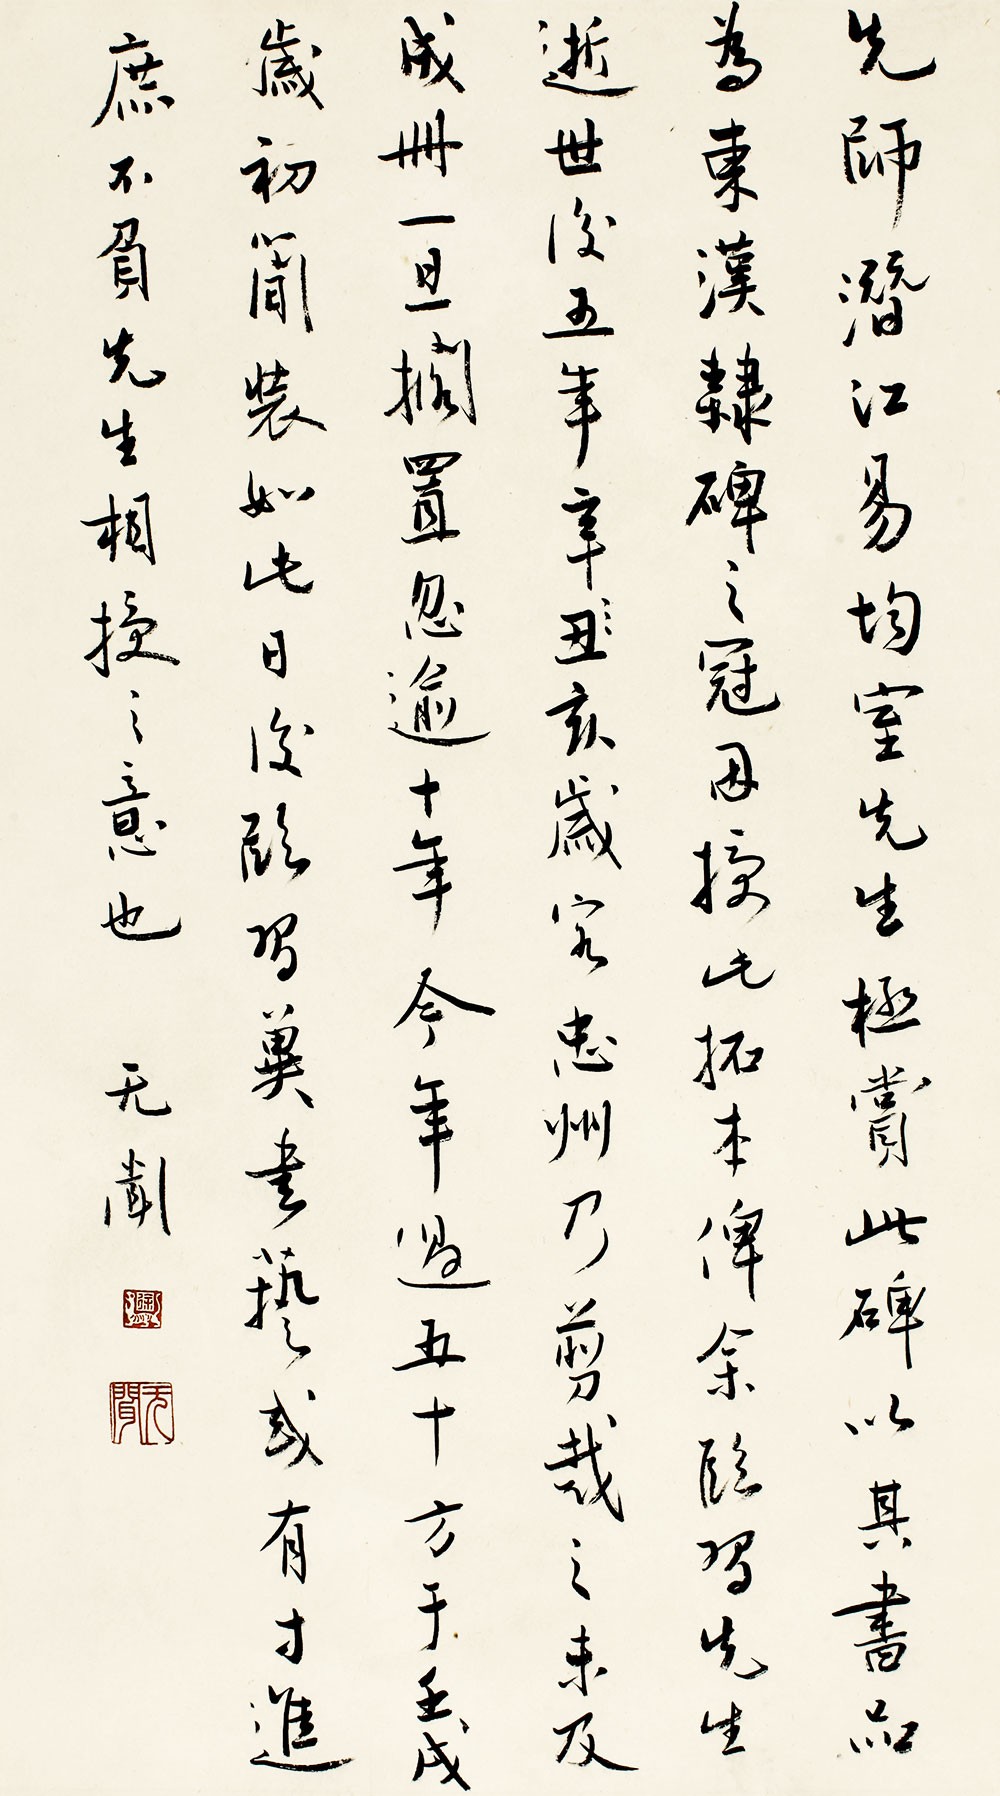 先師潛江易均室先生極賞此碑以其書品
為東漢隸碑之冠因授此拓本俾余臨習先生
逝世後五年辛丑亥歲客忠州乃剪裁之未及
成冊一旦擱置忽逾十年今年過五十方于壬戌
歲初簡裝如此日後臨習冀書藝或有寸進
庶不負先生相授之意也 无聞
无聞